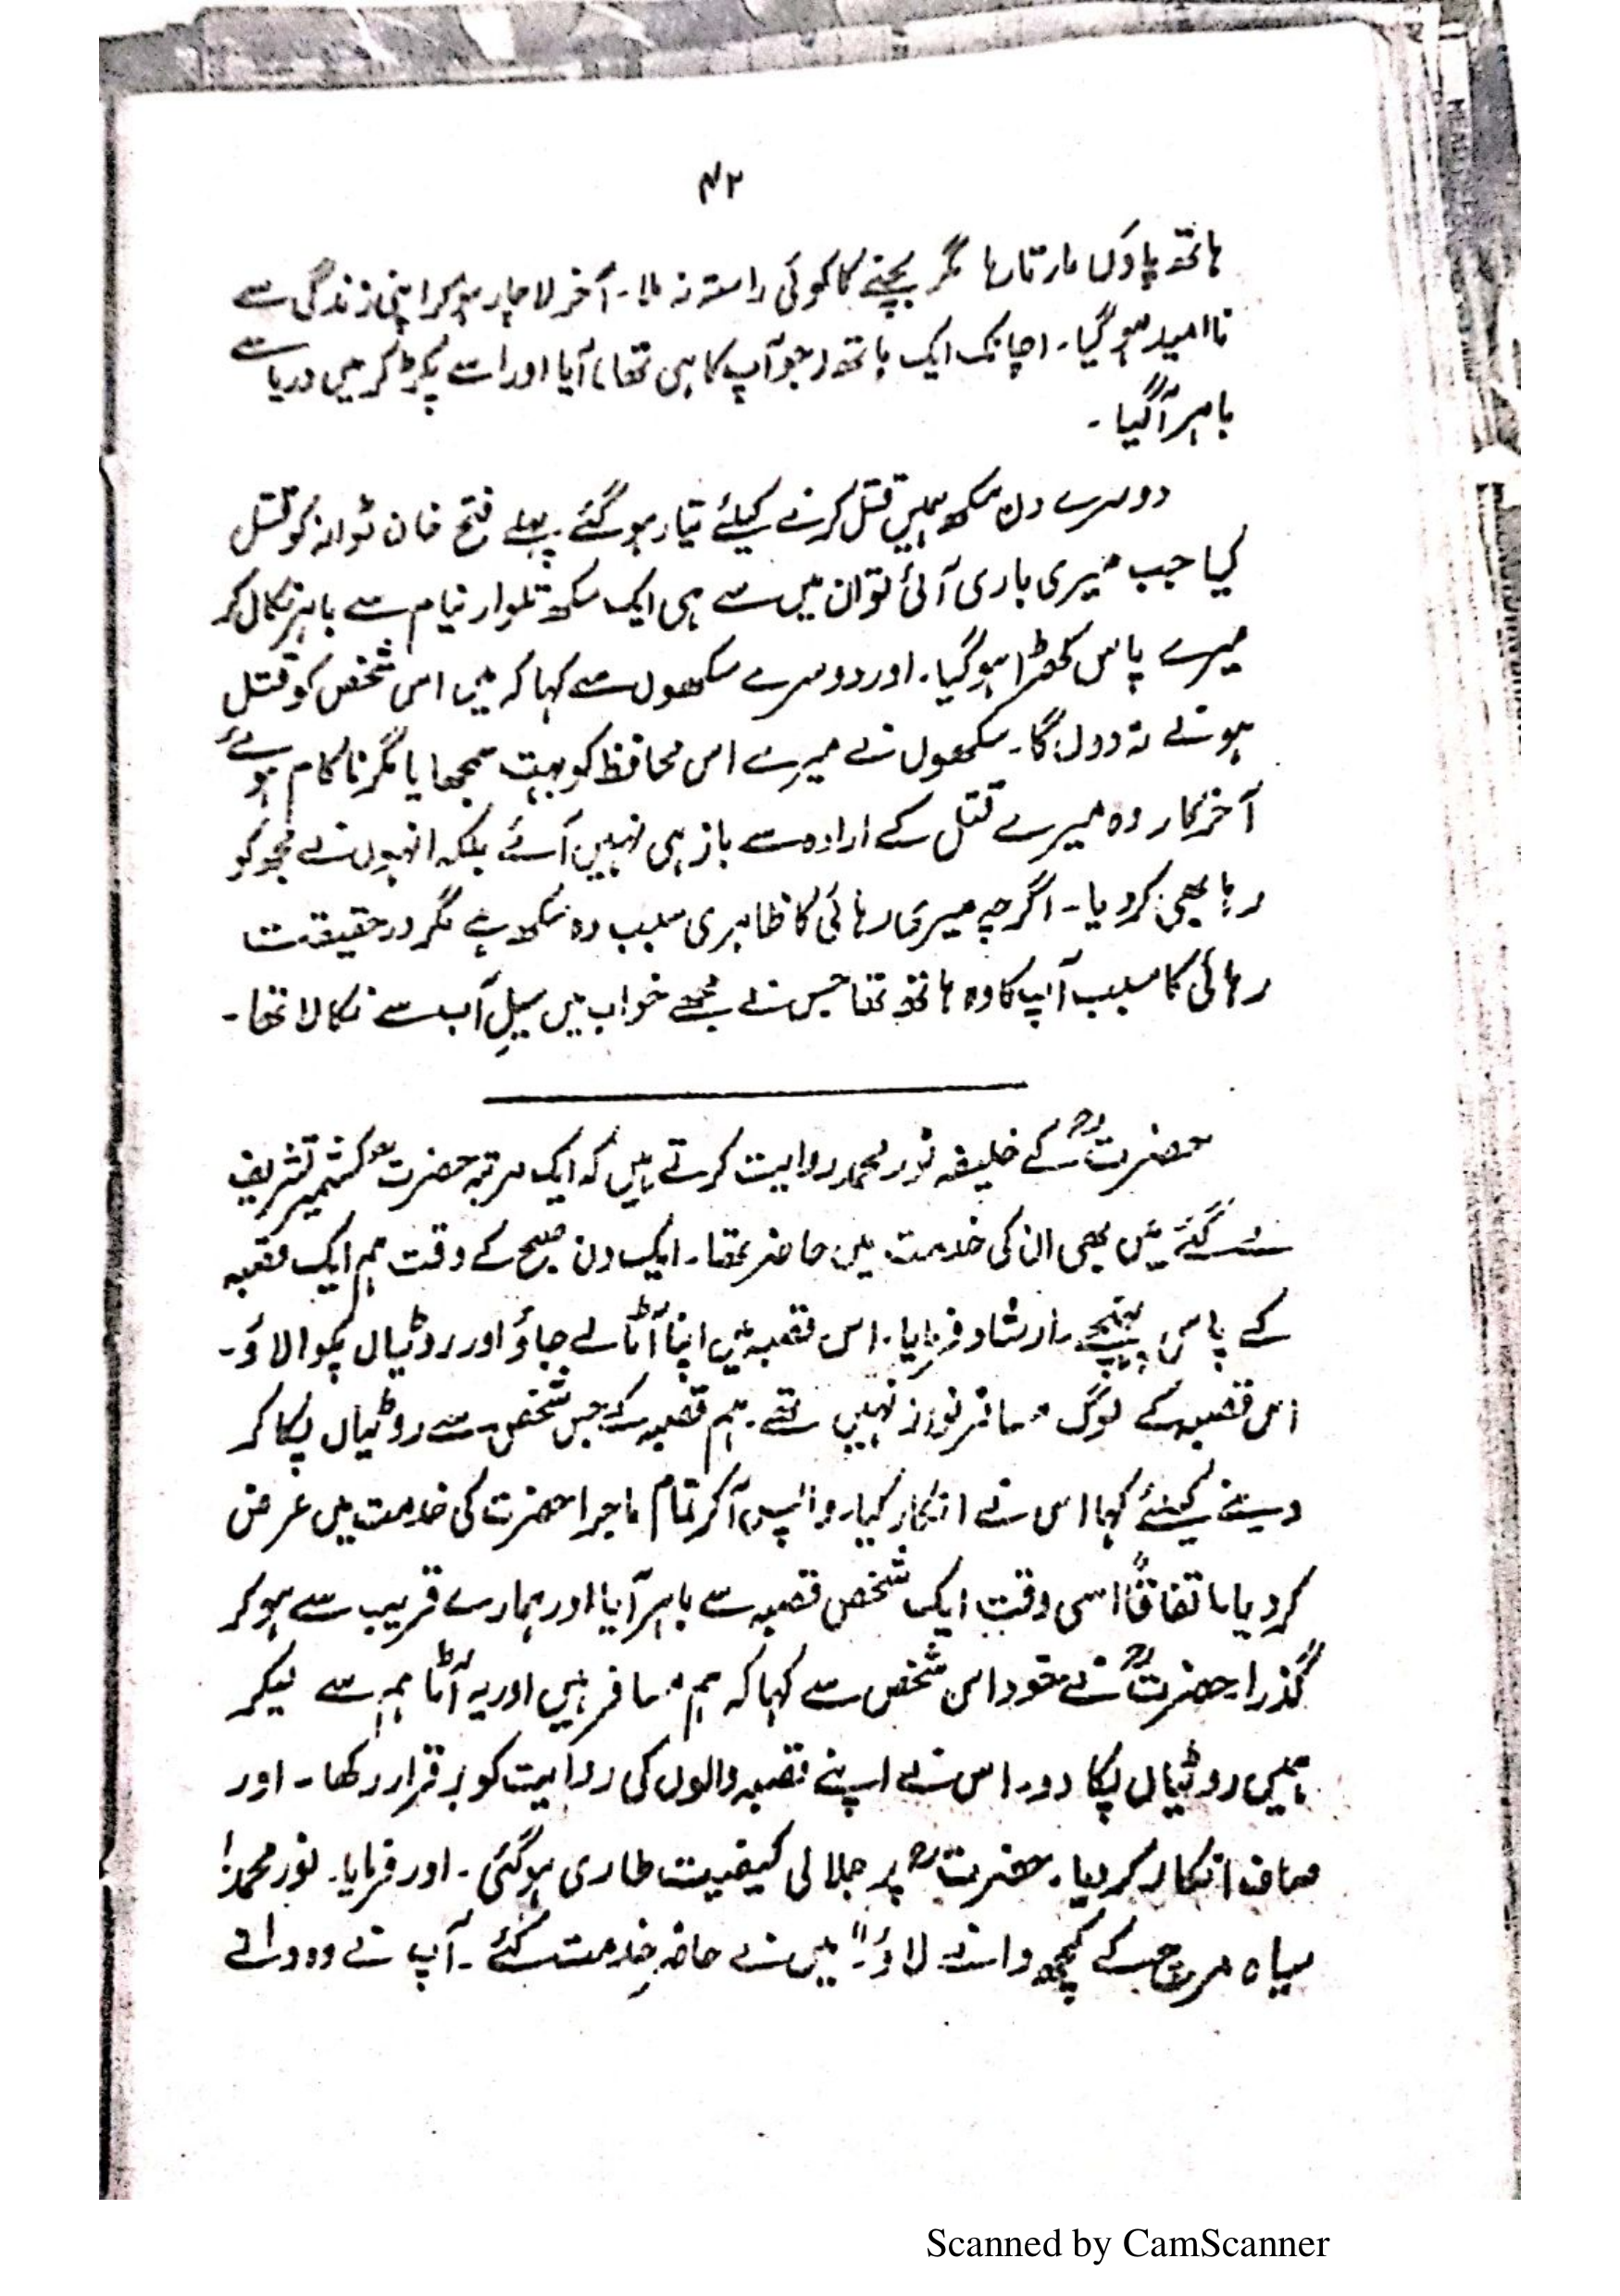 ۴۲
ہاتھ پاؤں مارتا رہا مگر بچنے کا کوئی راستہ نہ ملا۔ آخر لاچار ہو کر اپنی زندگی سے
نا امید ہو گیا۔ اچانک ایک ہاتھ (جو آپ کا ہی تھا) آیا اور اسے پکڑ کر میں دریا سے
باہر آ گیا۔
دوسرے دن سکھ ہمیں قتل کرنے کیلئے تیار ہو گئے پہلے فتح خان ٹوانہ کو قتل
کیا جب میری باری آئی تو ان میں سے ہی ایک سکھ تلوار نیام سے باہر نکال کر
میرے پاس کھڑا ہو گیا۔ اور دوسرے سکھوں سے کہا کہ میں اس شخص کو قتل
ہونے نہ دوں گا۔ سکھوں نے میرے اس محافظ کو بہت سمجھایا مگر ناکام ہوئے
آخر کار وہ میرے قتل کے ارادہ سے باز ہی نہیں آئے بلکہ انہوں نے مجھ کو
رہا بھی کر دیا۔ اگرچہ میری رہائی کا ظاہری سبب وہ سکھ ہے مگر درحقیقت
رہائی کا سبب آپ کا وہ ہاتھ تھا جس نے مجھے خواب میں سیلِ آب سے نکالا تھا۔
حضرتؒ کے خلیفہ نور محمد روایت کرتے ہیں کہ ایک مرتبہ حضرتؒ کشمیر تشریف
لے گئے میں بھی ان کی خدمت میں حاضر تھا۔ ایک دن صبح کے وقت ہم ایک قصبہ
کے پاس پہنچے۔ ارشاد فرمایا۔ اس قصبہ میں اپنا آٹا لے جاؤ اور روٹیاں پکوا لاؤ۔
اس قصبہ کے لوگ مسافر نواز نہیں تھے۔ ہم قصبہ کے جس شخص سے روٹیاں پکا کر
دینے کیلئے کہا اس نے انکار کیا۔ واپس آ کر تمام ماجرا حضرت کی خدمت میں عرض
کر دیا۔ اتفاقاً اسی وقت ایک شخص قصبہ سے باہر آیا اور ہمارے قریب سے ہو کر
گذرا۔ حضرتؒ نے خود اس شخص سے کہا کہ ہم مسافر ہیں اور یہ آٹا ہم سے لیکر
ہمیں روٹیاں پکا دو۔ اس نے اپنے قصبہ والوں کی روایت کو برقرار رکھا۔ اور
صاف انکار کر دیا۔ حضرتؒ پر جلالی کیفیت طاری ہو گئی۔ اور فرمایا۔ نور محمد!
سیاہ مرچ کے کچھ دانے لاؤ۔" میں نے حاضرِ خدمت کئے۔ آپ نے وہ دانے
Scanned by CamScanner